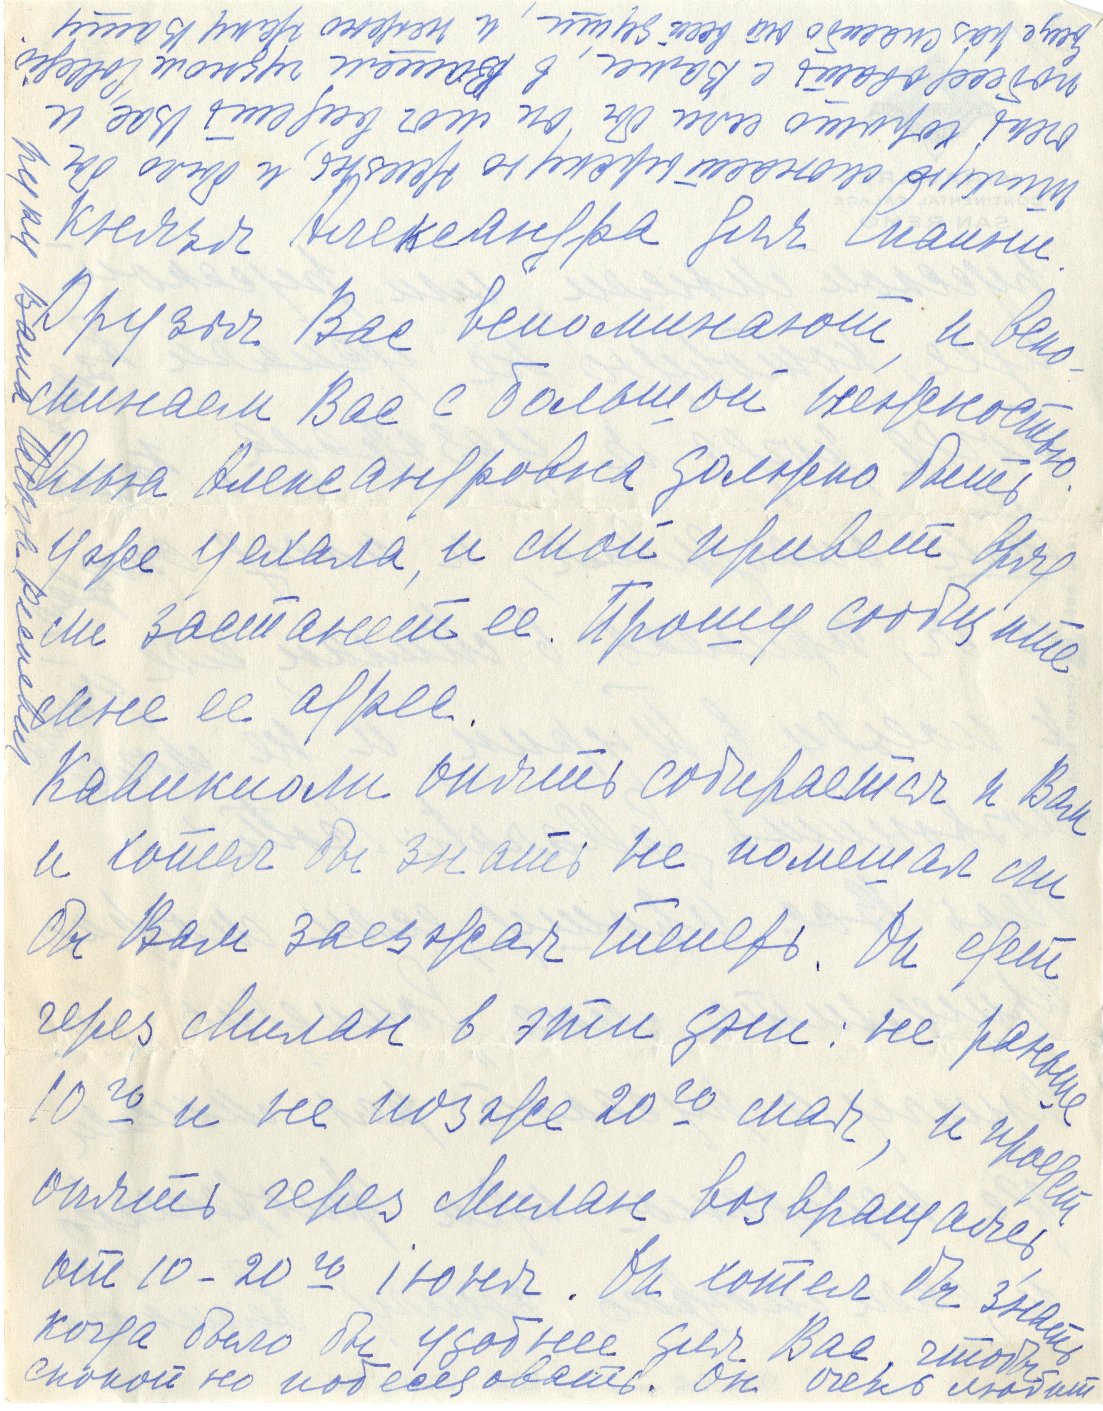 Князя Александра для мамы.
Друзья Вас вспоминают, и вспо-
минаем Вас с большой нежностью.
Александровна должно быть
уже уехала, и мой привет вряд
ли застанет ее. Прошу сообщите
мне ее адрес.
опять собирается к Вам
и хотел бы знать не помешал ли
бы Вам заезжая теперь. Он едет
через Милан в эти дни: не раньше
10го и не позже 20го мая, и проедет
опять через Милан возвращаясь
от 10-20го июня. Он хотел бы знать
когда было бы удобнее для Вас, чтобы
спокойно побеседовать. Он очень любит
и было бы
очень хорошо если бы он мог видеть Вас и
побеседовать с Вами, в Вашем чудном
Еще раз спасибо от всей души, и нежно жму Вашу
руку Ваша